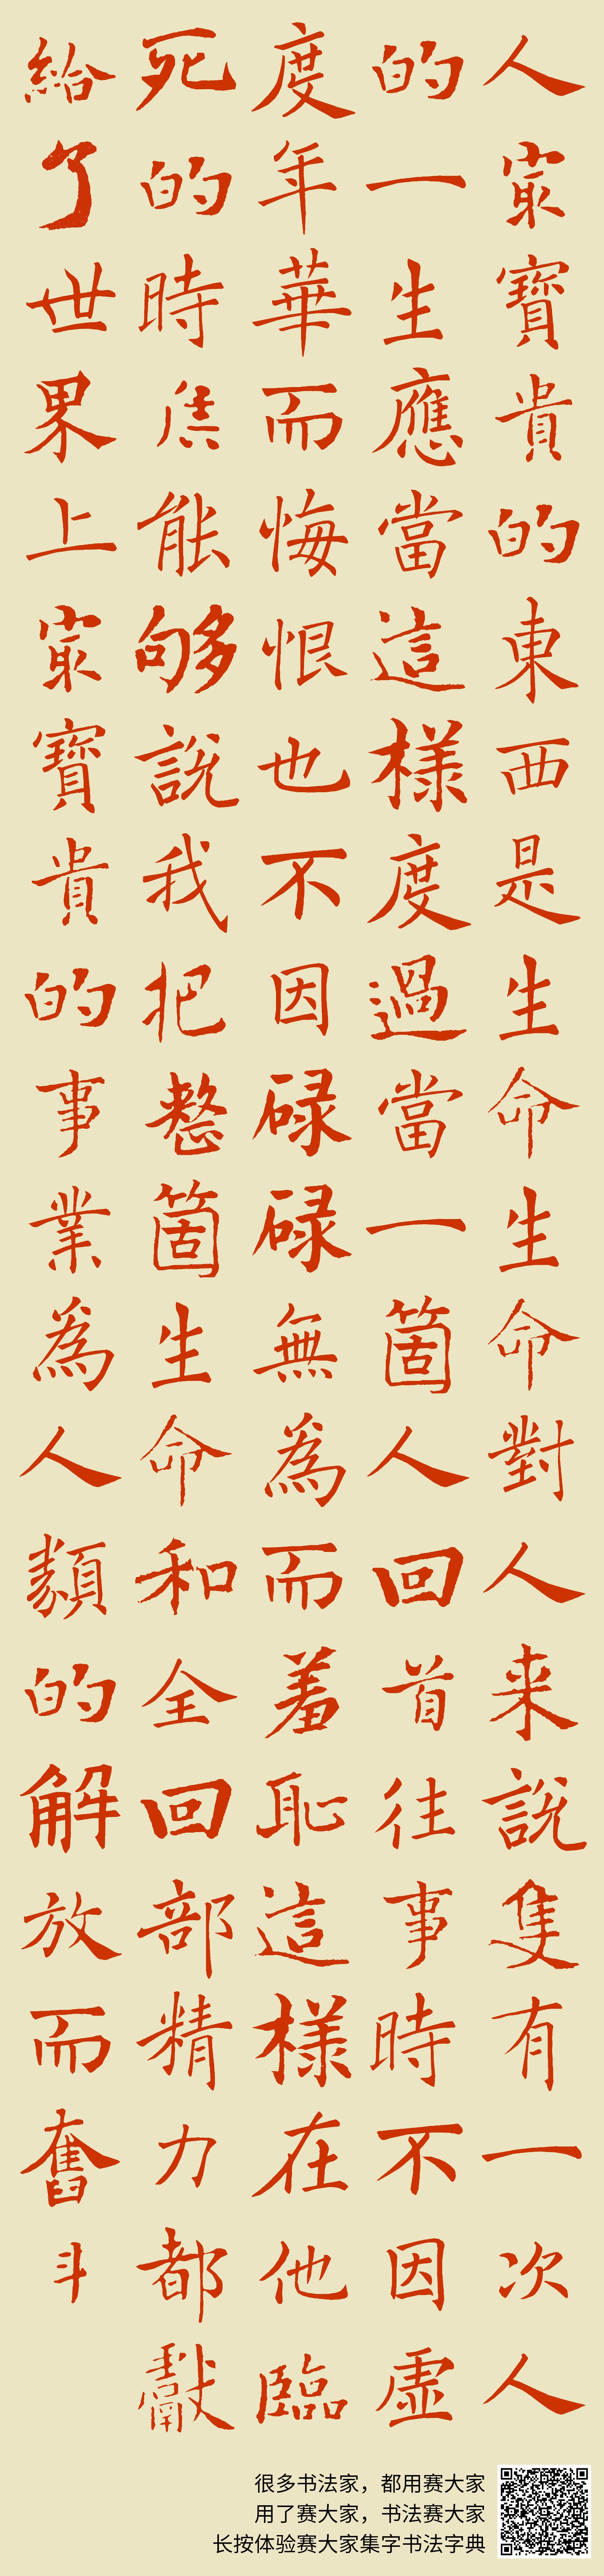 人冣寶貴的東西是生命生命對人来説隻有一次人
的一生應當這樣度過當一箇人回首往事時不因虛
度年華而悔恨也不因碌碌無為而羞恥這樣在他臨
死的時候能够説我把整箇生命和全回部精力都獻
給了世界上冣寶貴的事業為人類的解放而奮斗
很多书法家，都用赛大家
用了赛大家，书法赛大家
长按体验赛大家集字书法字典